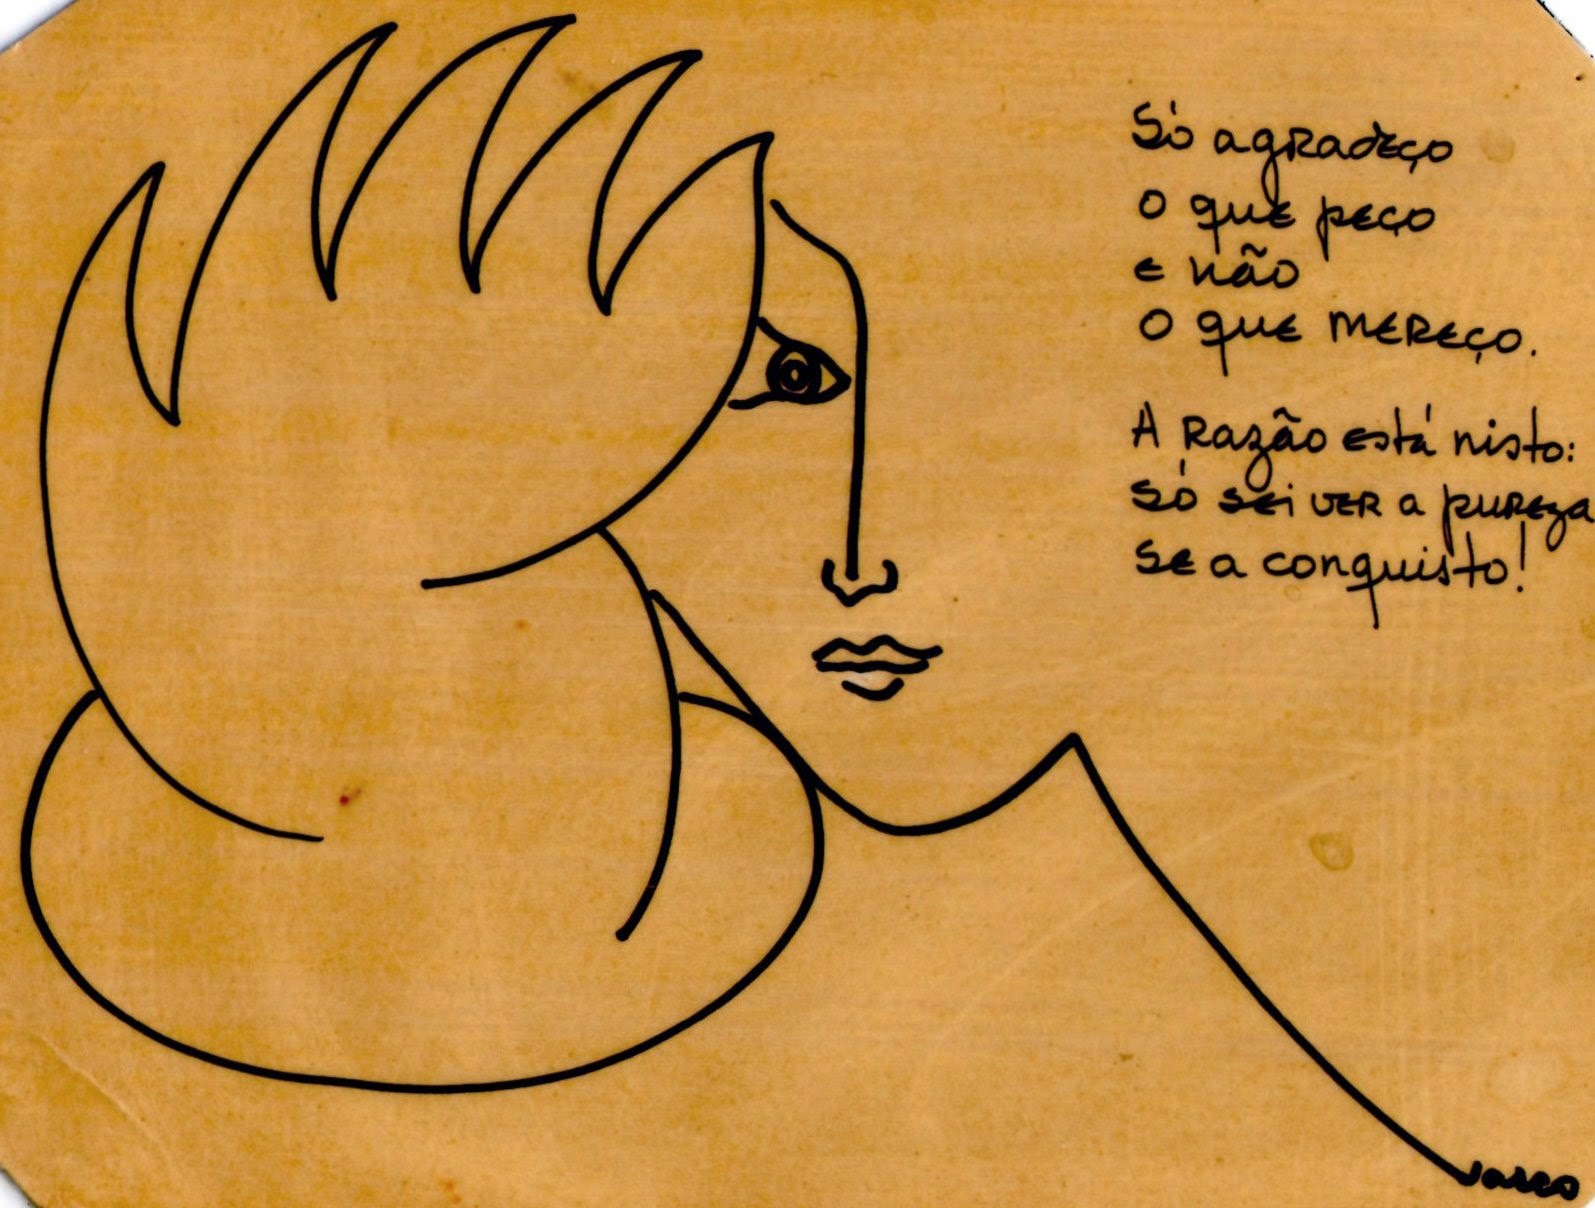 Só agradeço
o que peço
e não
o que mereço.
A razão está nisto:
só sei ver a pureza
se a conquisto!
Vasco